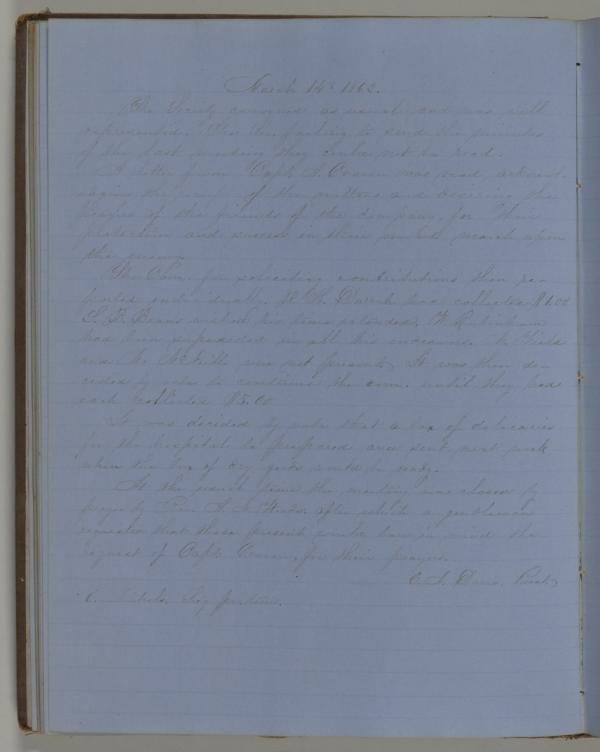 March 14th 1863.
The Society convened as usual and was well
represented. The Sec. failing to send the minutes
of the last meeting they could not be read.
A letter from Capt. Cowan was read, acknowl-
edging the receipt of the mittens and desiring the
prayers of the friends of the company, for their
protection and success in their march upon
the enemy.
The Com. for soliciting contributions then re-
ported individually. had collected $1.00
S. B. Beans wished his time extended, W.
had been in all his endeavors.
and Mr. were not present. It was then de-
cided by vote to continue the com. until they had
each collected $5.00
It was decided by vote that a box of delicacies
for the hospital be prepared and sent next week
when the box of dry goods would be ready.
At the usual time the meeting was closed by
prayer by after which a gentleman
requested that those present would bear in mind the
request of Capt. Cowan, for their prayers.
C. S. Davis, Prest.
Sec. pro tem.